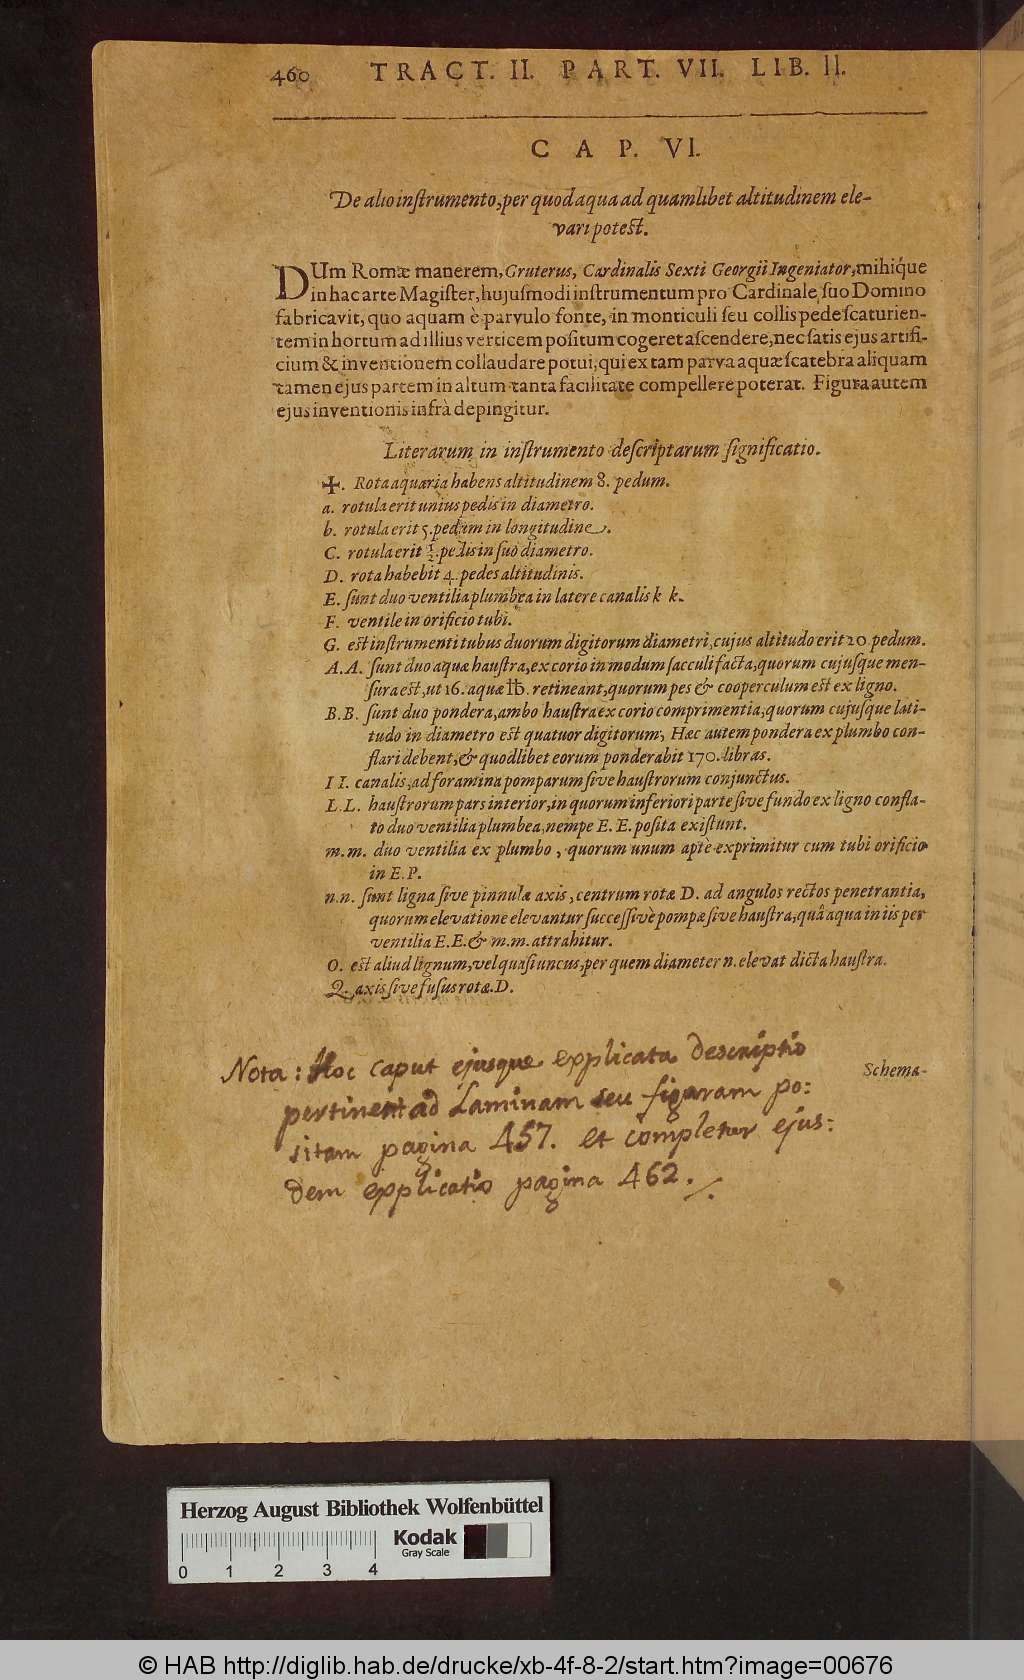 460 TRACT. II. PART. VII. LIB. II.
CAP. VI.
De alio inſtrumento, per quod aqua ad quamlibet altitudinem ele-
vari poteſt.
DUm Romæ manerem, Gruterus, Cardinalis Sexti Georgii Ingeniator, mihíque
in hac arte Magiſter, hujuſmodi inſtrumentum pro Cardinale, ſuo Domino
fabricavit, quo aquam è parvulo fonte, in monticuli ſeu collis pede ſcaturien-
tem in hortum ad illius verticem poſitum cogeret aſcendere, nec ſatis ejus artifi-
cium & inventionem collaudare potui, qui ex tam parva aquæ ſcatebra aliquam
tamen ejus partem in altum tanta facilitate compellere poterat. Figura autem
ejus inventionis infrà depingitur.
Literarum in inſtrumento deſcriptarum ſignificatio.
✠. Rota aquaria habens altitudinem 8. pedum.
a. rotula erit unius pedis in diametro.
b. rotula erit 5. pedum in longitudine.
C. rotula erit ½. pedis in ſuò diametro.
D. rota habebit 4. pedes altitudinis.
E. ſunt duo ventilia plumbea in latere canalis k k.
F. ventile in orificio tubi.
G. eſt inſtrumenti tubus duorum digitorum diametri, cujus altitudo erit 20 pedum.
A.A. ſunt duo aquæ hauſtra, ex corio in modum ſacculi facta, quorum cujuſque men-
ſura eſt, ut 16. aquæ ℔. retineant, quorum pes & cooperculum eſt ex ligno.
B.B. ſunt duo pondera, ambo hauſtra ex corio comprimentia, quorum cujuſque lati-
tudo in diametro eſt quatuor digitorum, Hæc autem pondera ex plumbo con-
flari debent, & quodlibet eorum ponderabit 170. libras.
I I. canalis, ad foramina pomparum ſive hauſtrorum conjunctus.
L.L. hauſtrorum pars interior, in quorum inferiori parte ſive fundo ex ligno confla-
to duo ventilia plumbea, nempe E. E. poſita exiſtunt.
m.m. duo ventilia ex plumbo, quorum unum aptè exprimitur cum tubi orificio
in E.P.
n.n. ſunt ligna ſive pinnulæ axis, centrum rotæ D. ad angulos rectos penetrantia,
quorum elevatione elevantur ſucceſſivè pompæ ſive hauſtra, quâ aqua in iis per
ventilia E.E. & m.m. attrahitur.
O. eſt aliud lignum, vel quaſi uncus, per quem diameter n. elevat dicta hauſtra.
Q. axis ſive fuſus rotæ. D.
Schema-
Nota: Hoc caput ejusque explicata descriptio
pertinent ad Laminam seu figuram po:
sitam pagina 457. et completur ejus:
dem explicatio pagina 462.
Herzog August Bibliothek Wolfenbüttel
Kodak
Gray Scale
0 1 2 3 4
© HAB http://diglib.hab.de/drucke/xb-4f-8-2/start.htm?image=00676